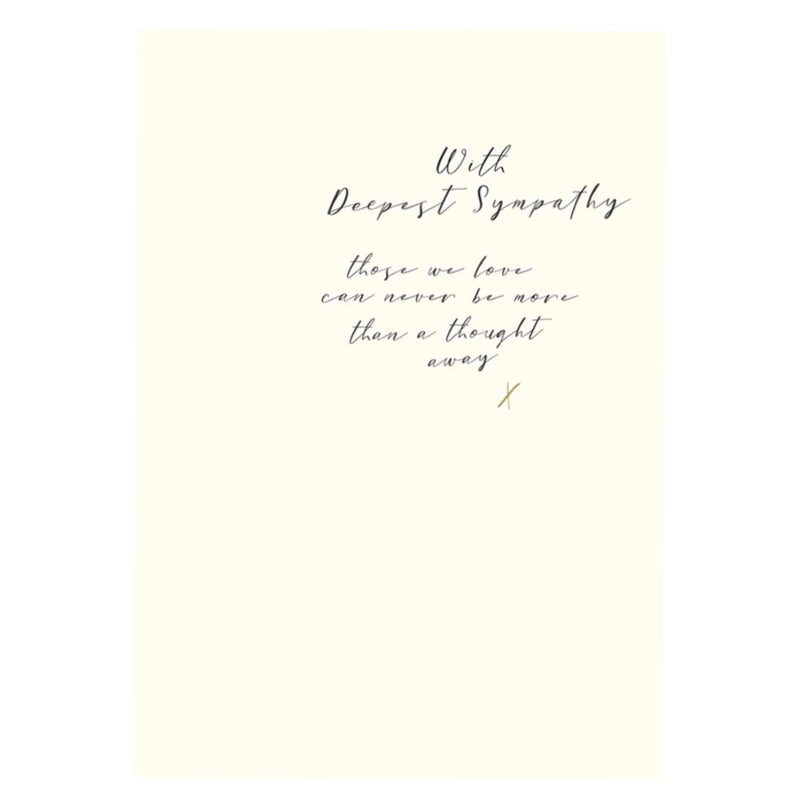 With
Deepest Sympathy
those we love
can never be more
than a thought
away
X